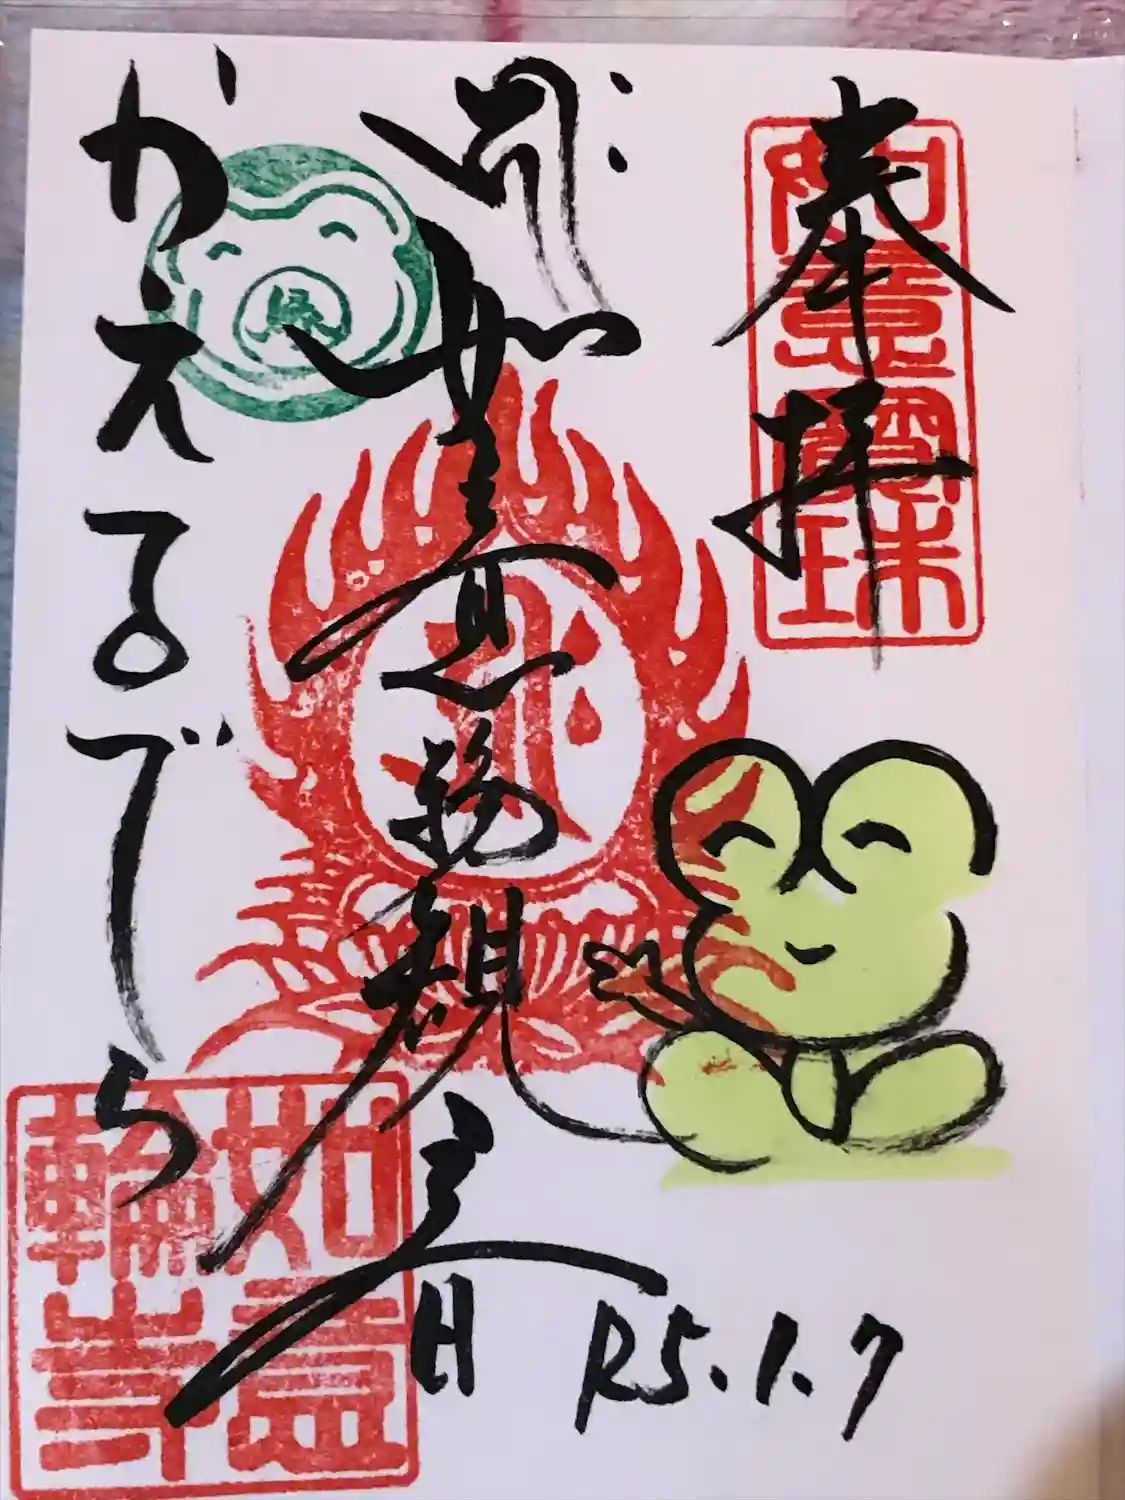 奉拝
如意寶珠
如意輪観音
R5.1.7
かえるでら
如意
輪寺